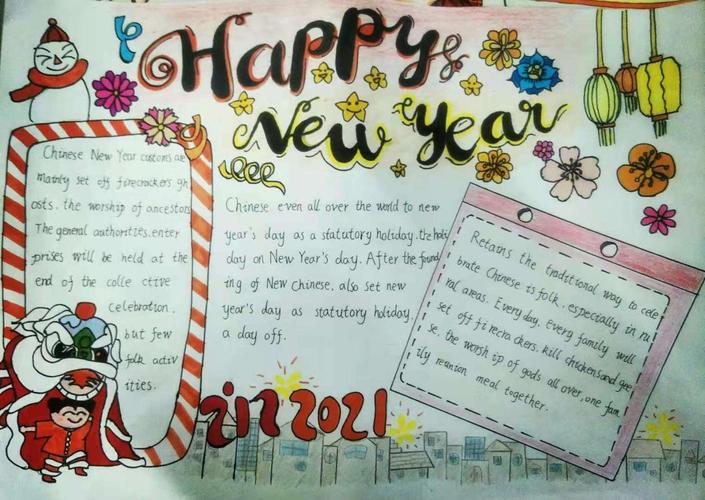 Happy
New Year
Chinese New Year customs are
mainly set off firecrackers, gh
osts. the worship of ancestors
The general authorities, enter
prises will be held at the
end of the colle ctive
celebration,
but few
folk activ
ities.
Chinese even all over the world to new
year's day as a statutory holiday. the holi
day on New Year's day. After the found
ing of New Chinese. also set new
year's day as statutory holiday,
a day off.
Retains the traditional way to cele
brate Chinese is folk, especially in ru
ral areas. Every day, every family will
set off firecrackers, kill chickens and gee
se, the worsh ip of gods all over, one fam
ily reunion meal together.
in 2021